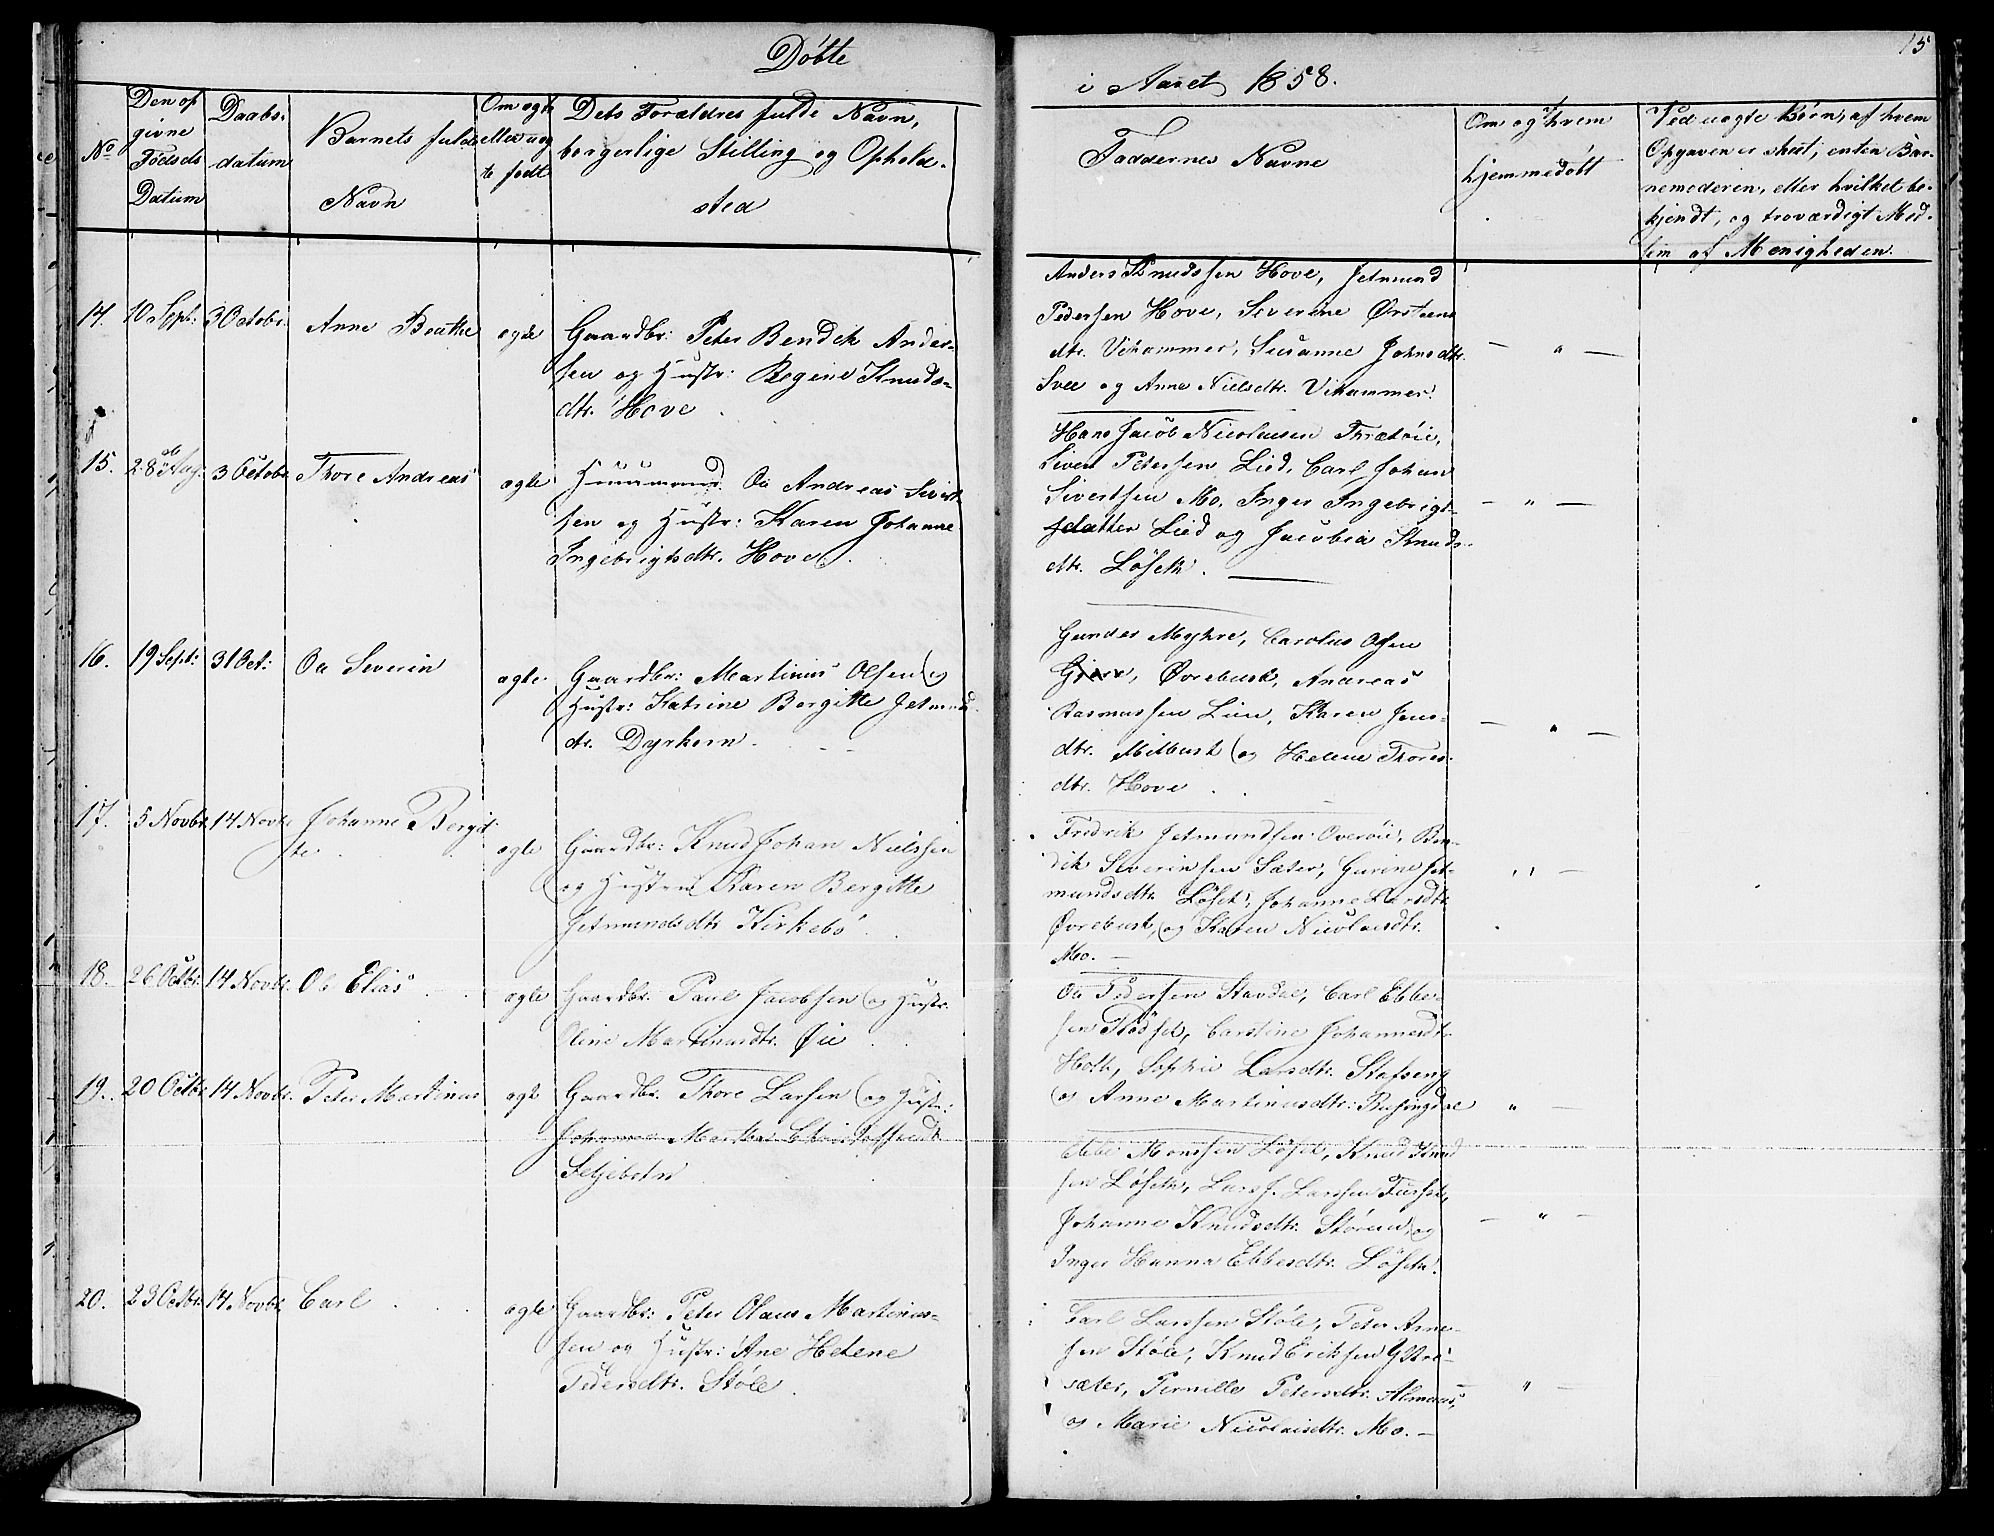 Döbte
i Aaret 1858.
15
No
Den op
givne
Födsels
Datum
Daabs-
datum
Barnets fulde
Navn
Om ægte
eller uæg
te födt
Dets Forældres fulde Navn,
borgerlige Stilling og Ophold-
sted
Faddernes Navne
Om og hvem
hjemmedöbt
Ved uægte Börn, af hvem
Opgaven er skeet, enten Bar-
nemoderen, eller hvilket be-
kjendt, og troværdigt Med-
lem af Menigheden.
14. 10 Sept: 3 Octobr. Anne Beathe ægte Gaardbr: Peter Bendik Ander-
sen og Hustr: Regine Knuds-
dtr. Hove.
Anders Knudssen Hove, Jetmund
Pedersen Hove, Severine Örstens
dtr. Vihammer, Susanne Johnsdtr.
Svee og Anne Nielsdtr. Vihammer.
— " —
15. 28 Aug: 3 Octobr. Thore Andreas ægte Huusmand Ole Andreas Sivert-
sen og Hustr: Karen Johanne
Ingebrigtsdtr. Hove.
Hans Jacob Nicolaisen Thrætöie,
Sivert Petersen Lied, Carl Johan
Sivertsen Mo, Inger Ingebrigt-
sdatter Lied og Jacobia Knuds-
dtr. Löseth. —
— " —
16. 19 Sept: 31 Oct: Ole Severin ægte Gaardbr: Martinus Olsen og
Hustr: Katrine Bergitte Jetmund
dtr. Dyrkorn.
Gunder Myhre, Carolus Olsen
Övrebust, Andreas
Rasmussen Lien, Karen Jens-
dtr. Mitbust og Helene Thores-
dtr. Hove
— " —
17. 5 Novbr. 14 Novbr. Johanne Bergit-
te ægte Gaardbr: Knud Johan Nielssen
og Hustru Karen Bergitte
Jetmundsdtr Kirkebö.
Fredrik Jetmundsen Overöie, Ben-
dik Severinsen Sæter, Gurine Jet-
mundsdtr. Löset, Johanne Larsdtr
Övrebust, og Karen Nicolaisdtr.
Mo. —
" —
18. 26 Octbr. 14 Novbr. Ole Elias ægte Gaardbr. Paul Jacobsen og Hustr.
Oline Martinusdtr. Öie
Ole Pedersen Stavdal, Carl Ebbe-
sen Carstine Johannesdtr.
Holth, Sophie Larsdtr. Stafseng
og Anne Martinusdtr:
" —
19. 20 Octbr 14 Novbr. Peter Martinus ægte Gaardbr. Thore Larsen og Hustr:
Johanne Marthe Christoffersdtr
Seljebotn
Ebbe Monssen Löset, Knud Knud
sen Löseth, Lars J. Larssen
Johanne Knudsdtr. Stören, og
Inger Hanna Ebbesdtr. Löseth.
— " —
20. 23 Octbr. 14 Novbr. Carl ægte Gaardbr: Peter Olaus Martinus-
sen og Hustr: Ane Helene
Pedersdtr. Stöle.
Carl Larssen Stöle, Peter Arne-
sen Stöle, Knud Eriksen Ystre-
sæter, Pernille Petersdtr. Almaas,
og Marie Nicolaisdtr. Mo. —
" —